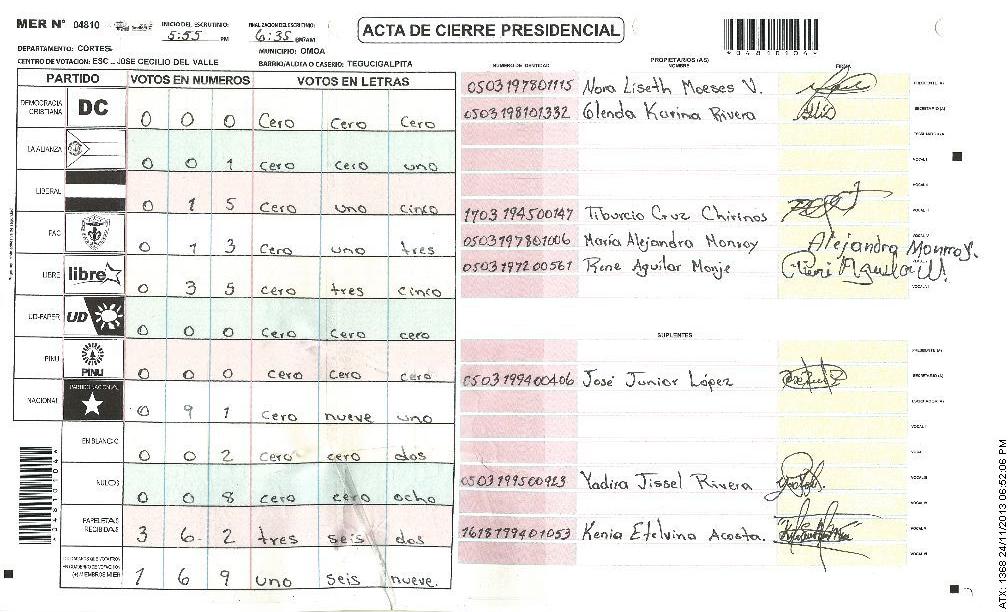 MER N° 04810
INICIO DEL ESCRUTINIO: 5:55 PM
FINALIZACION DEL ESCRUTINIO: 6:35
ACTA DE CIERRE PRESIDENCIAL
DEPARTAMENTO: CORTES
MUNICIPIO: OMOA
CENTRO DE VOTACION: ESC. JOSE CECILIO DEL VALLE
BARRIO/ALDEA O CASERIO: TEGUCIGALPITA
PARTIDO VOTOS EN NUMEROS VOTOS EN LETRAS
DEMOCRACIA CRISTIANA DC 0 0 0 Cero Cero Cero
LA ALIANZA 0 0 1 cero cero uno
LIBERAL 0 1 5 Cero uno cinco
PAC 0 1 3 Cero uno tres
LIBRE libre 0 3 5 cero tres cinco
UD-FAPER UD 0 0 0 Cero Cero cero
PINU PINU 0 0 0 cero Cero cero
NACIONAL PARTIDO NACIONAL 0 9 1 cero nueve uno
EN BLANCO 0 0 2 cero cero dos
NULOS 0 0 8 cero cero ocho
PAPELETAS RECIBIDAS 3 6 2 tres seis dos
(+) MIEMBROS MER 1 6 9 uno seis nueve.
PROPIETARIOS (AS)
NUMERO DE IDENTIDAD NOMBRE FIRMA
0503197801115 Nora Liseth Moeses V. PRESIDENTE (A)
0503198101332 Glenda Karina Rivera SECRETARIO (A)
ESCRUTADOR (A)
VOCAL I
VOCAL II
1703194500147 Tiburcio Cruz Chirinos
0503197801006 María Alejandra Monroy Alejandra Monroy.
0503197200561 Rene Aguilar Monje
SUPLENTES
PRESIDENTE (A)
0503199400406 José Junior López SECRETARIO (A)
ESCRUTADOR (A)
VOCAL I
0503199500923 Yadira Jissel Rivera
1618199401053 Kenia Etelvina Acosta.
*04810104*
ATX: 1368 24/11/2013 06:52:06 PM